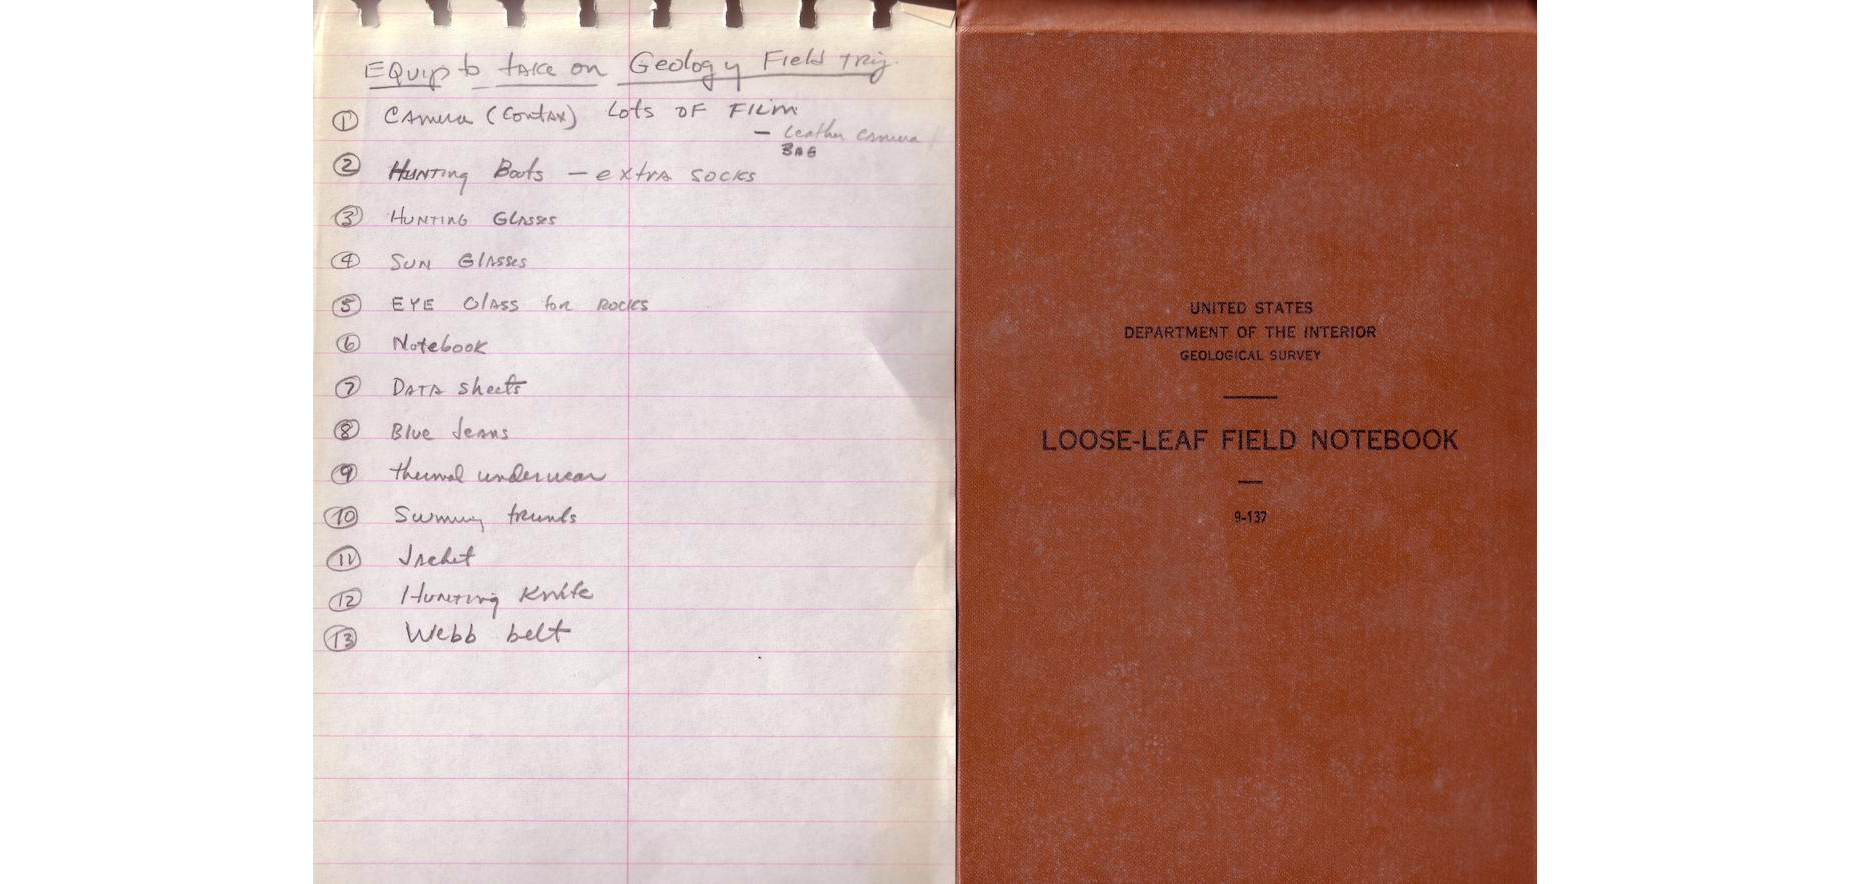 Equip to take on Geology Field Trip.
① Camera (Contax) Lots of Film
— Leather camera
BAG
② Hunting Boots — extra socks
③ Hunting Glasses
④ Sun Glasses
⑤ EYE Glass for Rocks
⑥ Notebook
⑦ Data sheets
⑧ Blue Jeans
⑨ thermal underwear
⑩ Swimming trunks
⑪ Jacket
⑫ Hunting Knife
⑬ Webb belt
UNITED STATES
DEPARTMENT OF THE INTERIOR
GEOLOGICAL SURVEY
LOOSE-LEAF FIELD NOTEBOOK
9-137